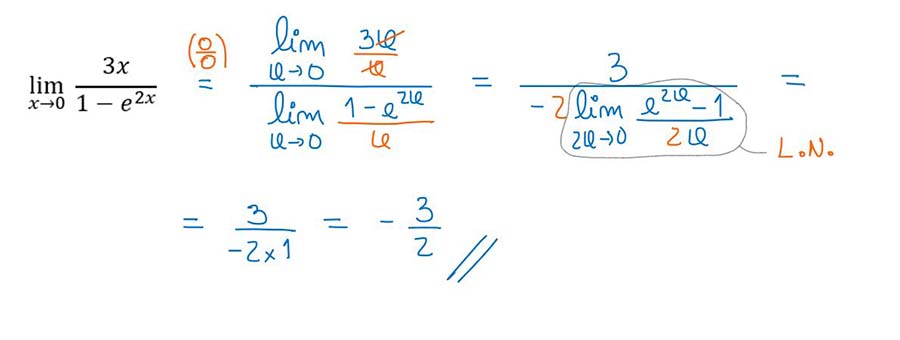 lim x→0 3x / (1 − e^{2x}) (0/0) = (lim x→0 3x/x) / (lim x→0 (1 − e^{2x})/x) = 3 / (−2 lim 2x→0 (e^{2x} − 1)/(2x)) =
L.N.
= 3 / (−2×1) = − 3/2 //